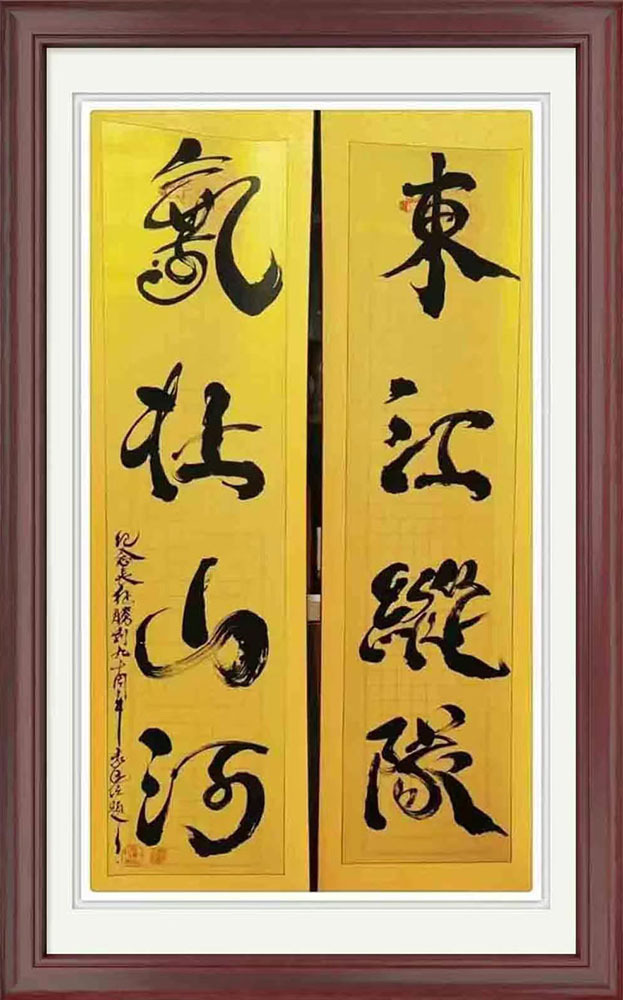 東江縱隊
氣壯山河
紀念長征勝利九十周年
題